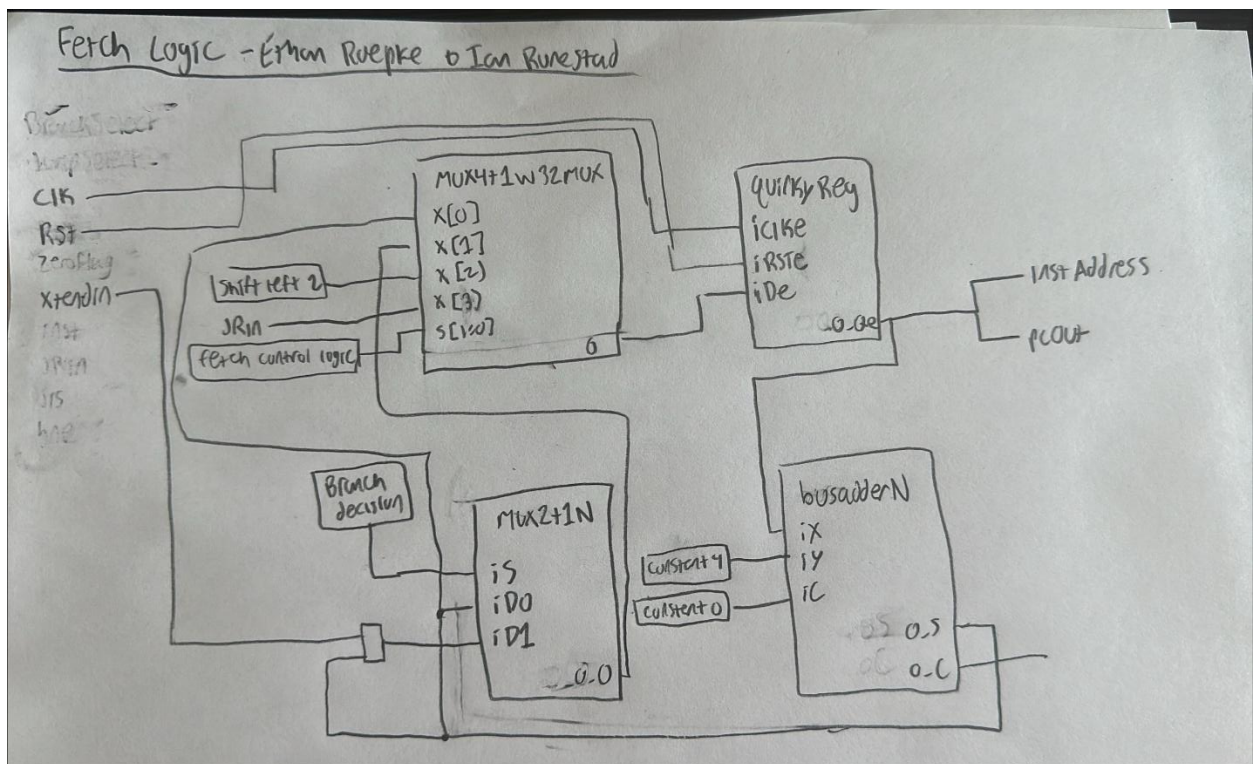 Fetch Logic - Ethan Ruepke & Ian Runestad
BranchSelect
JumpSelect
ClK
RST
ZeroFlag
Xtendin
inst
JRin
bne
MUX4t1w32MUX
X[0]
X[1]
X[2]
X[3]
S[1:0]
O
Shift left 2
JRin
fetch control logic
quirkyReg
iClKe
iRSTe
iDe
o_Qe
Inst Address
pcOut
Branch decision
MUX2t1N
iS
iD0
iD1
o_O
busadderN
iX
iY
iC
o_S
o_C
constent 4
constent 0